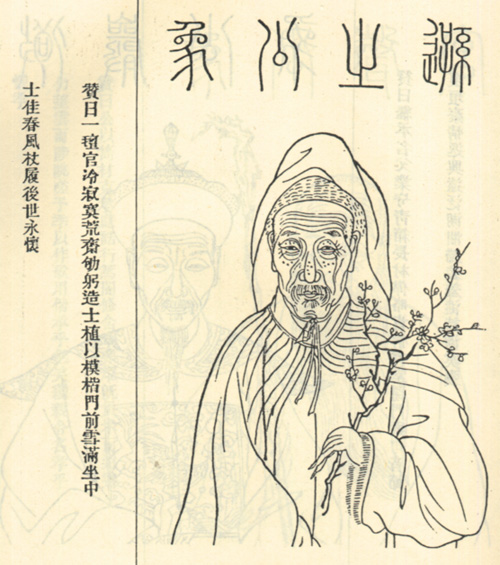 遜之公象
贊曰一氈官冷寂寞荒齋劬躬造士植以模楷門前雪滿坐中
士佳春風杖履後世永懷